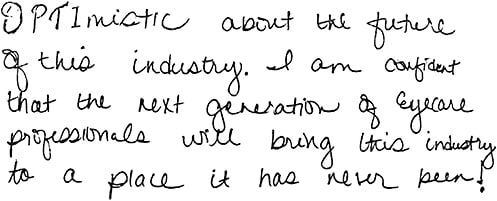 OPTImistic about the future
of this industry. I am confident
that the next generation of Eyecare
professionals will bring this industry
to a place it has never been!